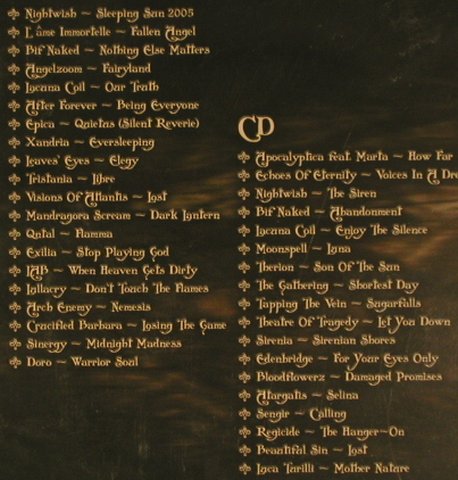 Nightwish ~ Sleeping Sun 2005
L'âme Immortelle ~ Fallen Angel
Bif Naked ~ Nothing Else Matters
Angelzoom ~ Fairyland
Lacuna Coil ~ Our Truth
After Forever ~ Being Everyone
Epica ~ Quietus (Silent Reverie)
Xandria ~ Eversleeping
Leaves' Eyes ~ Elegy
Tristania ~ Libre
Visions Of Atlantis ~ Lost
Mandragora Scream ~ Dark Lantern
Qntal ~ Flamma
Exilia ~ Stop Playing God
IAB ~ When Heaven Gets Dirty
Lullacry ~ Don't Touch The Flames
Arch Enemy ~ Nemesis
Crucified Barbara ~ Losing The Game
Sinergy ~ Midnight Madness
Doro ~ Warrior Soul
CD
Apocalyptica feat. Marta ~ How Far
Echoes Of Eternity ~ Voices In A Dre
Nightwish ~ The Siren
Bif Naked ~ Abandonment
Lacuna Coil ~ Enjoy The Silence
Moonspell ~ Luna
Therion ~ Son Of The Sun
The Gathering ~ Shortest Day
Tapping The Vein ~ Sugarfalls
Theatre Of Tragedy ~ Let You Down
Sirenia ~ Sirenian Shores
Edenbridge ~ For Your Eyes Only
Bloodflowerz ~ Damaged Promises
Atargatis ~ Selina
Sengir ~ Calling
Regicide ~ The Hanger~On
Beautiful Sin ~ Lost
Luca Turilli ~ Mother Nature